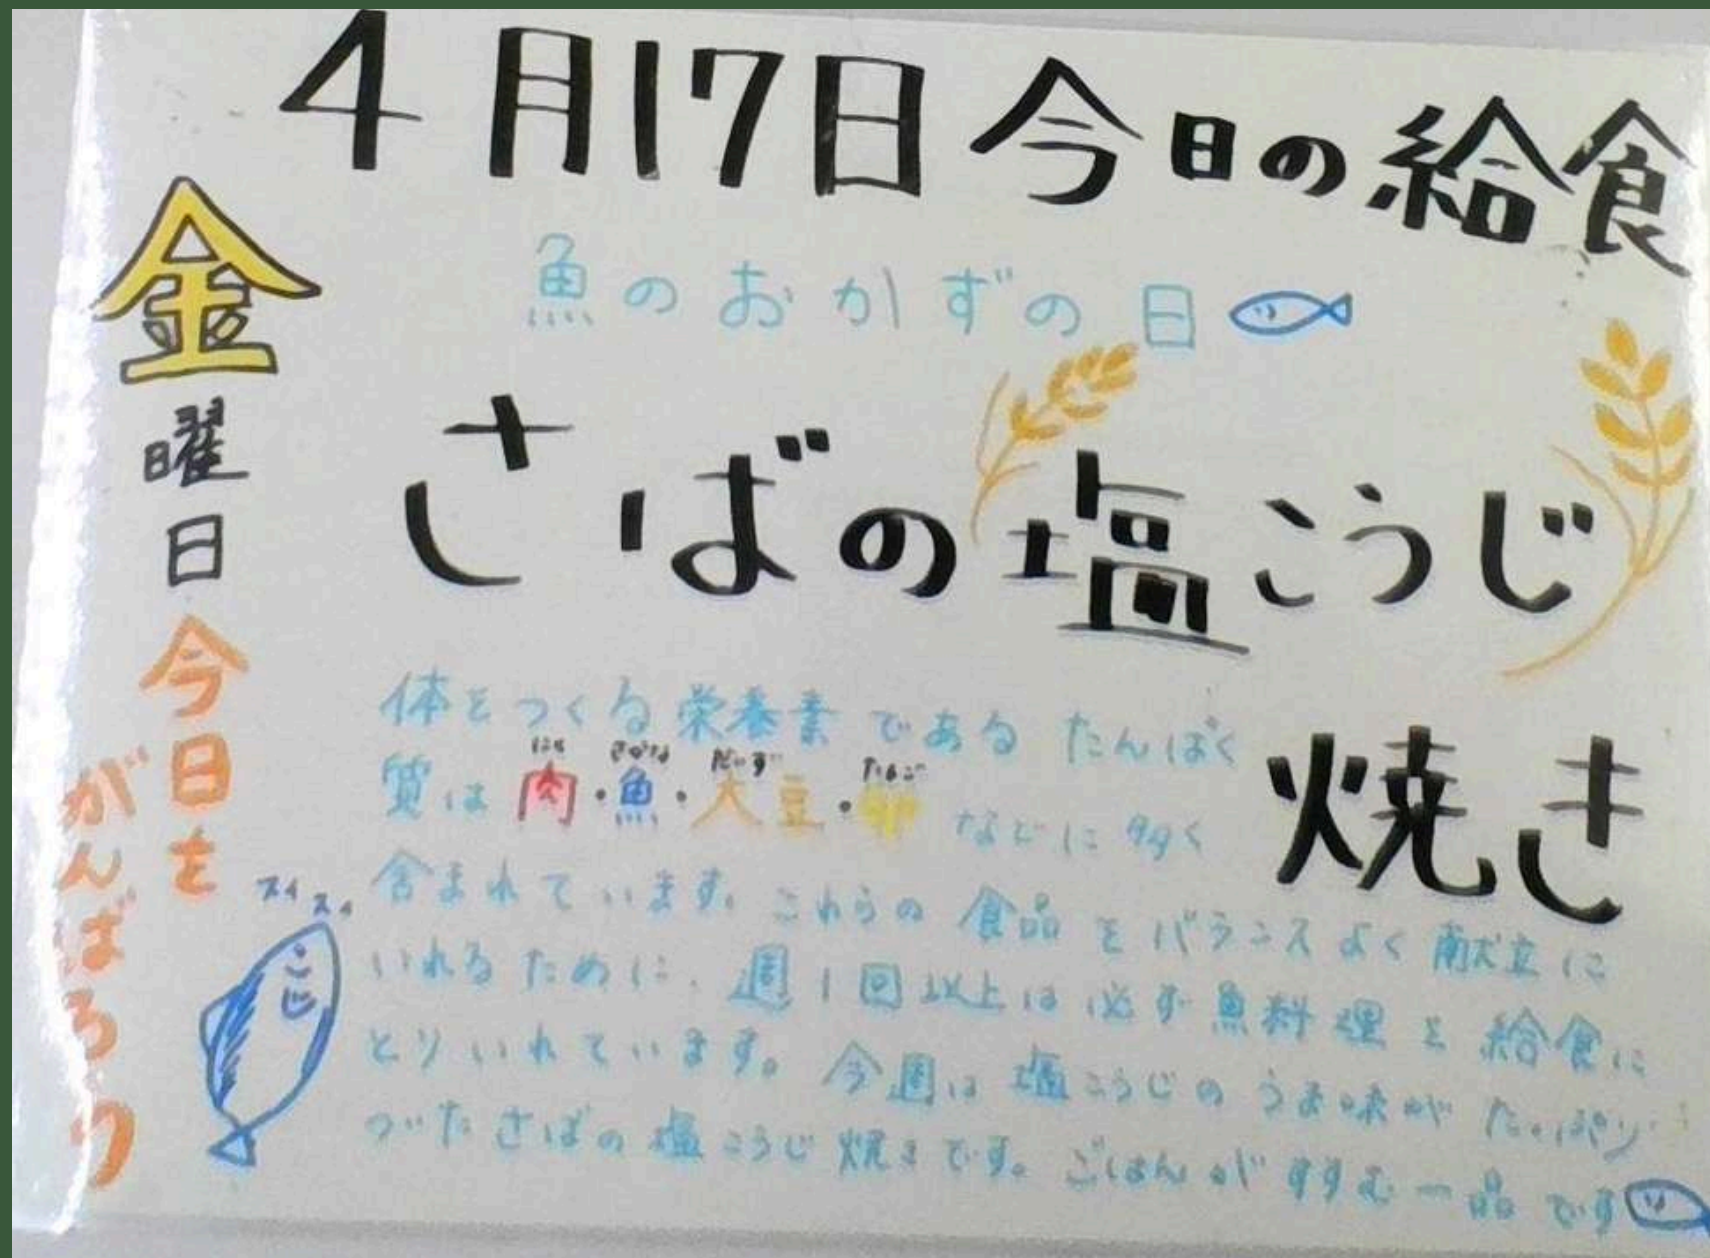 4月17日今日の給食
魚のおかずの日
金曜日
今日を
がんばろう
さばの塩こうじ
焼き
体をつくる栄養素であるたんぱく
質は肉・魚・大豆・卵などに多く
にく さかな だいず たまご
含まれています。これらの食品をバランスよく献立に
いれるために、週1回以上は必ず魚料理を給食に
とりいれています。今週は塩こうじのうま味がたっぷり
ついたさばの塩こうじ焼きです。ごはんがすすむ一品です
スイスイ
こじ